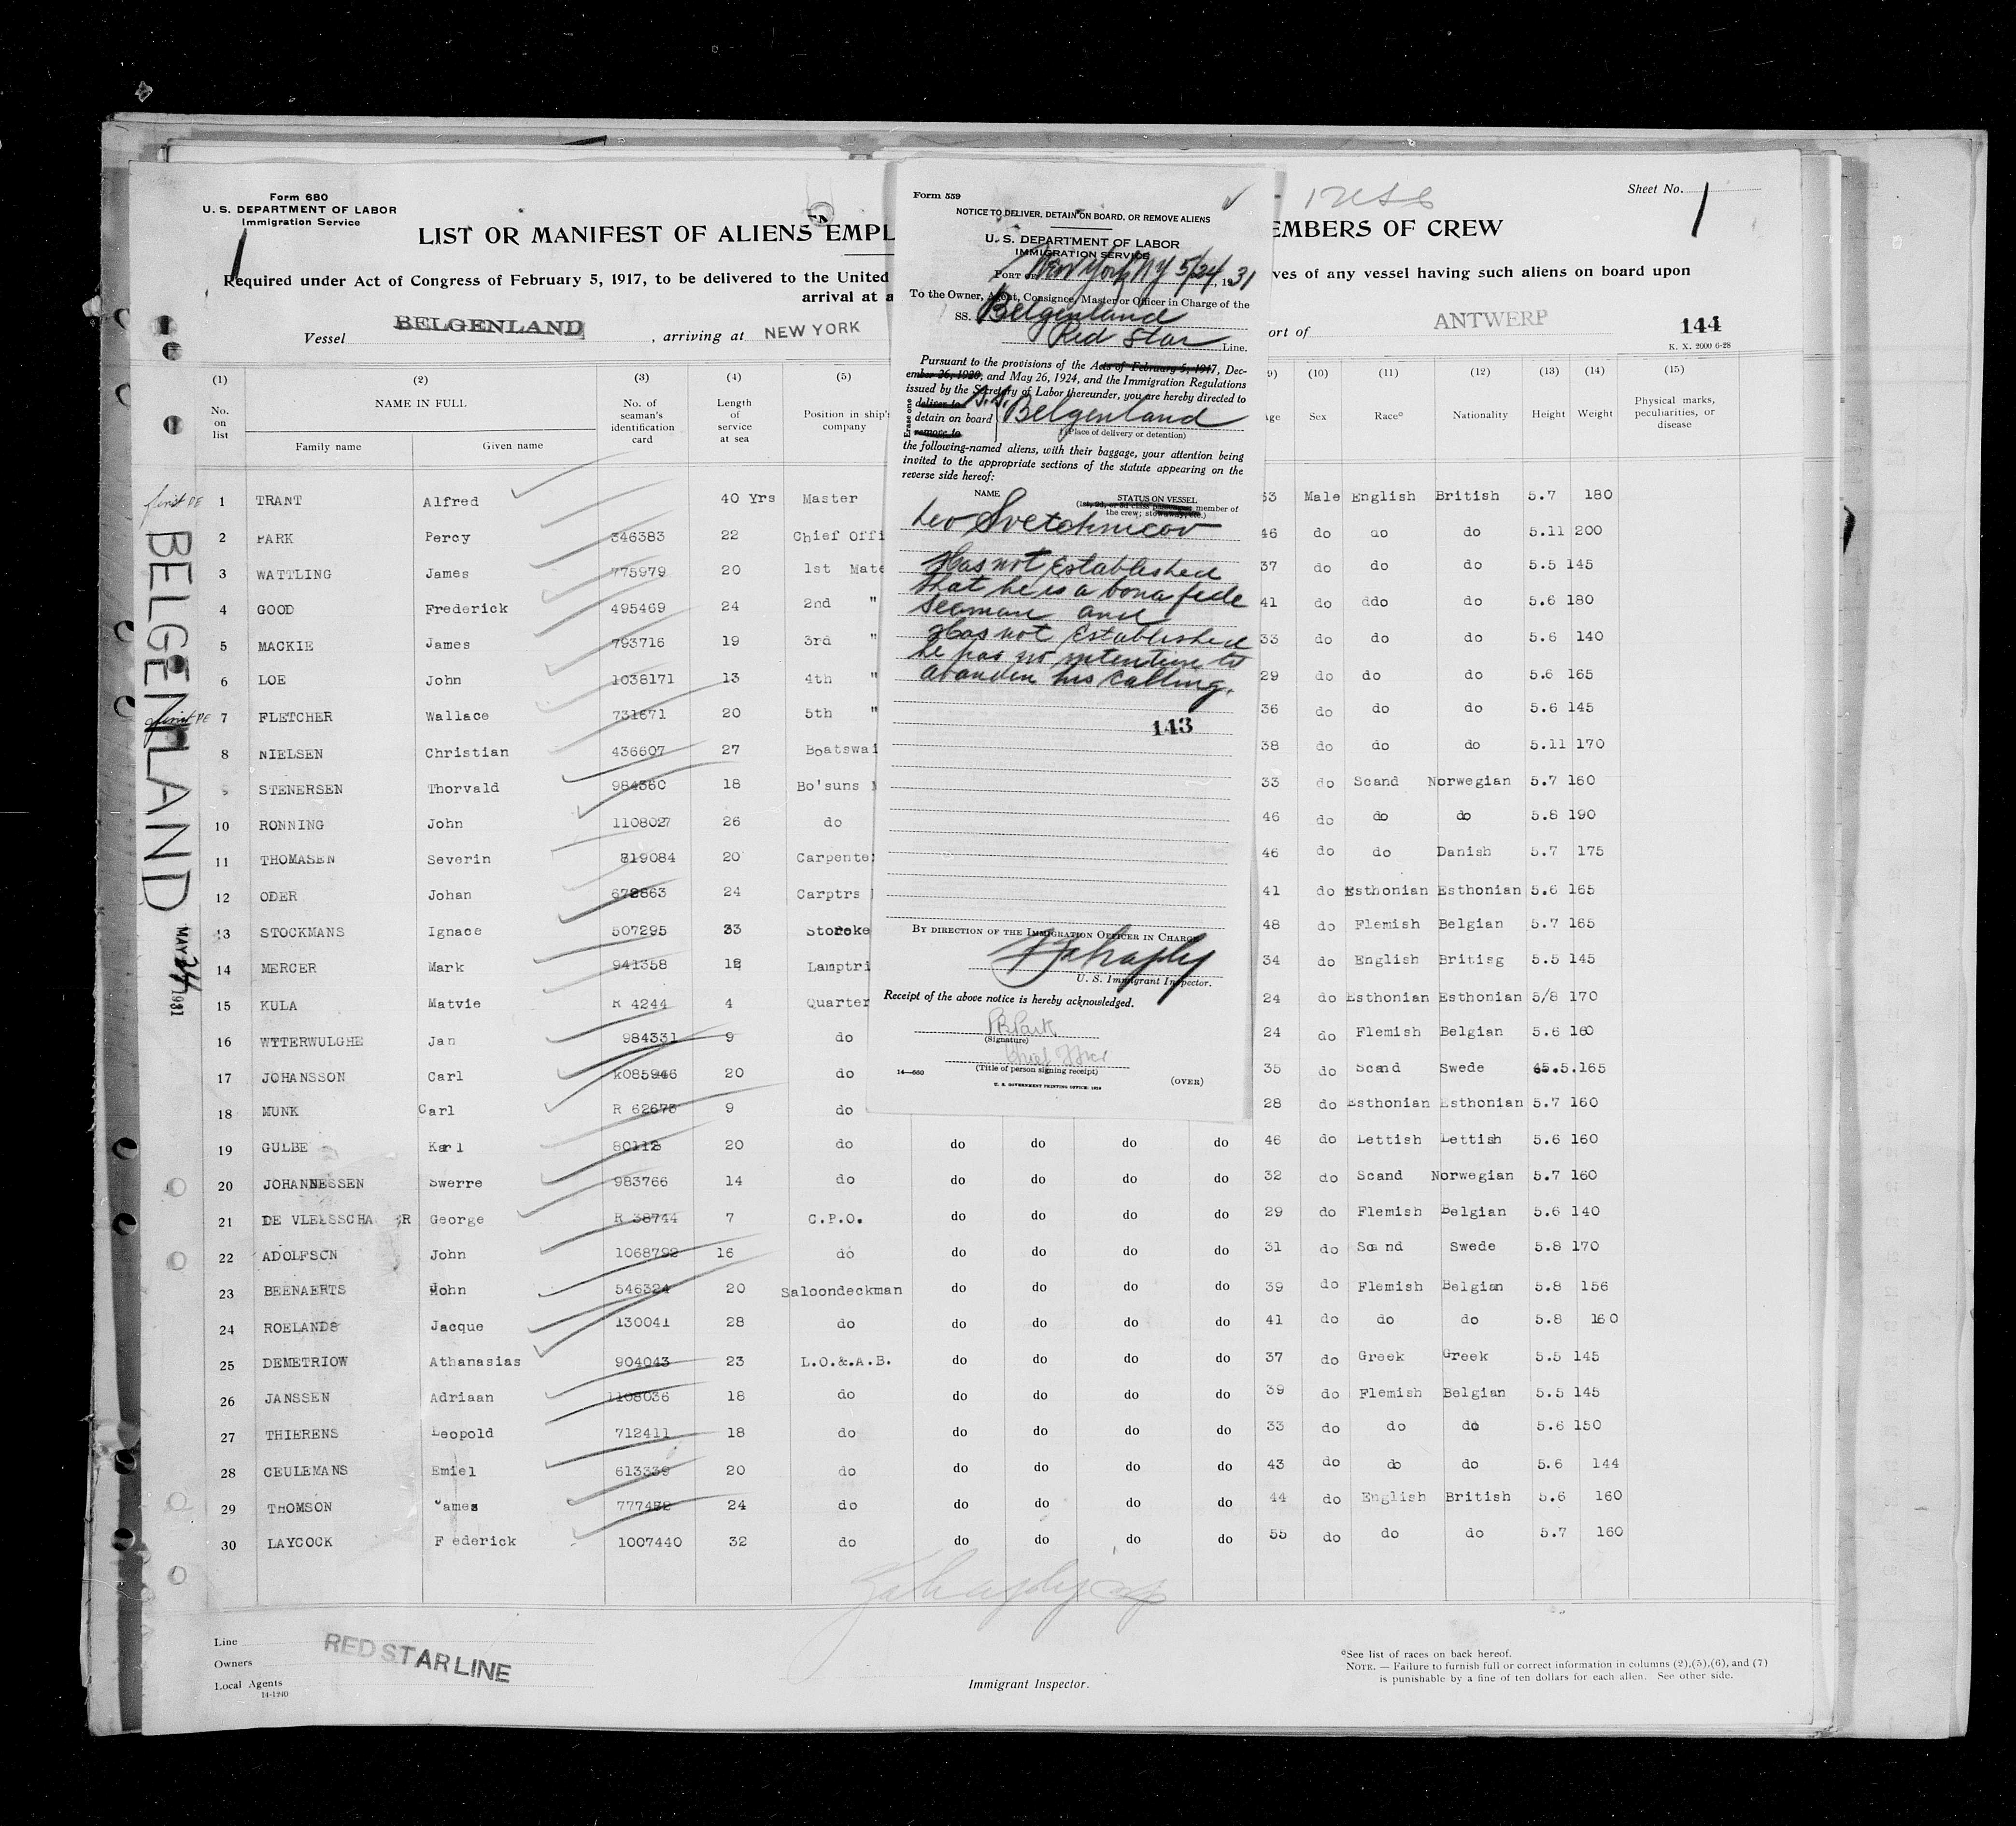 Form 680
U. S. DEPARTMENT OF LABOR
Immigration Service
1
LIST OR MANIFEST OF ALIENS EMPL
EMBERS OF CREW
Sheet No. 1
Required under Act of Congress of February 5, 1917, to be delivered to the United
ves of any vessel having such aliens on board upon
arrival at a
Vessel BELGENLAND, arriving at NEW YORK
ort of ANTWERP
144
K. X. 2000 6-28
(1) (2) (3) (4) (5) (10) (11) (12) (13) (14) (15)
No. on list
NAME IN FULL
Family name Given name
No. of seaman's identification card
Length of service at sea
Position in ship's company
Sex Race* Nationality Height Weight
Physical marks, peculiarities, or disease
1 TRANT Alfred 40 Yrs Master 53 Male English British 5.7 180
2 PARK Percy 346383 22 Chief Offi 46 do do do 5.11 200
3 WATTLING James 775979 20 1st Mate 37 do do do 5.5 145
4 GOOD Frederick 495469 24 2nd " 41 do ddo do 5.6 180
5 MACKIE James 793716 19 3rd " 33 do do do 5.6 140
6 LOE John 1038171 13 4th " 29 do do do 5.6 165
7 FLETCHER Wallace 731671 20 5th " 36 do do do 5.6 145
8 NIELSEN Christian 436607 27 Boatswai 38 do do do 5.11 170
9 STENERSEN Thorvald 984360 18 Bo'suns 33 do Scand Norwegian 5.7 160
10 RONNING John 1108027 26 do 46 do do do 5.8 190
11 THOMASEN Severin 819084 20 Carpente 46 do do Danish 5.7 175
12 ODER Johan 672863 24 Carptrs 41 do Esthonian Esthonian 5.6 165
13 STOCKMANS Ignace 507295 33 Storeke 48 do Flemish Belgian 5.7 165
14 MERCER Mark 941358 12 Lamptri 34 do English Britisg 5.5 145
15 KULA Matvie R 4244 4 Quarter 24 do Esthonian Esthonian 5/8 170
16 WYTERWULGHE Jan 984331 9 do 24 do Flemish Belgian 5.6 160
17 JOHANSSON Carl R085946 20 do 35 do Scand Swede 5.165
18 MUNK Carl R 62675 9 do 28 do Esthonian Esthonian 5.7 160
19 GULBE Karl 80112 20 do do do do do 46 do Lettish Lettish 5.6 160
20 JOHANNESSEN Swerre 983766 14 do do do do do 32 do Scand Norwegian 5.7 160
21 DE VLEESSCHA R George R 38744 7 C.P.O. do do do do 29 do Flemish Belgian 5.6 140
22 ADOLFSON John 1068792 16 do do do do do 31 do Scand Swede 5.8 170
23 BEENAERTS John 546324 20 Saloondeckman do do do do 39 do Flemish Belgian 5.8 156
24 ROELANDS Jacque 130041 28 do do do do do 41 do do do 5.8 160
25 DEMETRIOW Athanasias 904043 23 L.O.&.A.B. do do do do 37 do Greek Greek 5.5 145
26 JANSSEN Adriaan 1108036 18 do do do do do 39 do Flemish Belgian 5.5 145
27 THIERENS Leopold 712411 18 do do do do do 33 do do do 5.6 150
28 CEULEMANS Emiel 613339 20 do do do do do 43 do do do 5.6 144
29 THOMSON James 777432 24 do do do do do 44 do English British 5.6 160
30 LAYCOCK F ederick 1007440 32 do do do do do 55 do do do 5.7 160
BELGENLAND
MAY 24 1931
Form 559
NOTICE TO DELIVER, DETAIN ON BOARD, OR REMOVE ALIENS
U. S. DEPARTMENT OF LABOR
IMMIGRATION SERVICE
PORT OF New York NY 5/24, 1931
To the Owner, Agent, Consignee, Master or Officer in Charge of the
SS. Belgenland
Red Star Line.
Pursuant to the provisions of the Acts of February 5, 1917, Dec-
ember 26, 1920, and May 26, 1924, and the Immigration Regulations
issued by the Secretary of Labor thereunder, you are hereby directed to
Erase one
deliver to
detain on board
remove to
S.S. Belgenland
(Place of delivery or detention)
the following-named aliens, with their baggage, your attention being
invited to the appropriate sections of the statute appearing on the
reverse side hereof:
NAME
STATUS ON VESSEL
(1st, 2d, or 3d class passenger, member of
the crew; stowaway, etc.)
Leo Svetchnicov
Has not Established
that he is a bona fide
seaman and
Has not Established
he has no intention to
abandon his calling.
143
BY DIRECTION OF THE IMMIGRATION OFFICER IN CHARGE
U. S. Immigrant Inspector.
Receipt of the above notice is hereby acknowledged.
P.B.Park
(Signature)
Chief Offcr
(Title of person signing receipt)
14—660
U. S. GOVERNMENT PRINTING OFFICE: 1928
(OVER)
Line
Owners
Local Agents
14-1240
RED STAR LINE
Immigrant Inspector.
*See list of races on back hereof.
NOTE. — Failure to furnish full or correct information in columns (2), (5), (6), and (7)
is punishable by a fine of ten dollars for each alien. See other side.